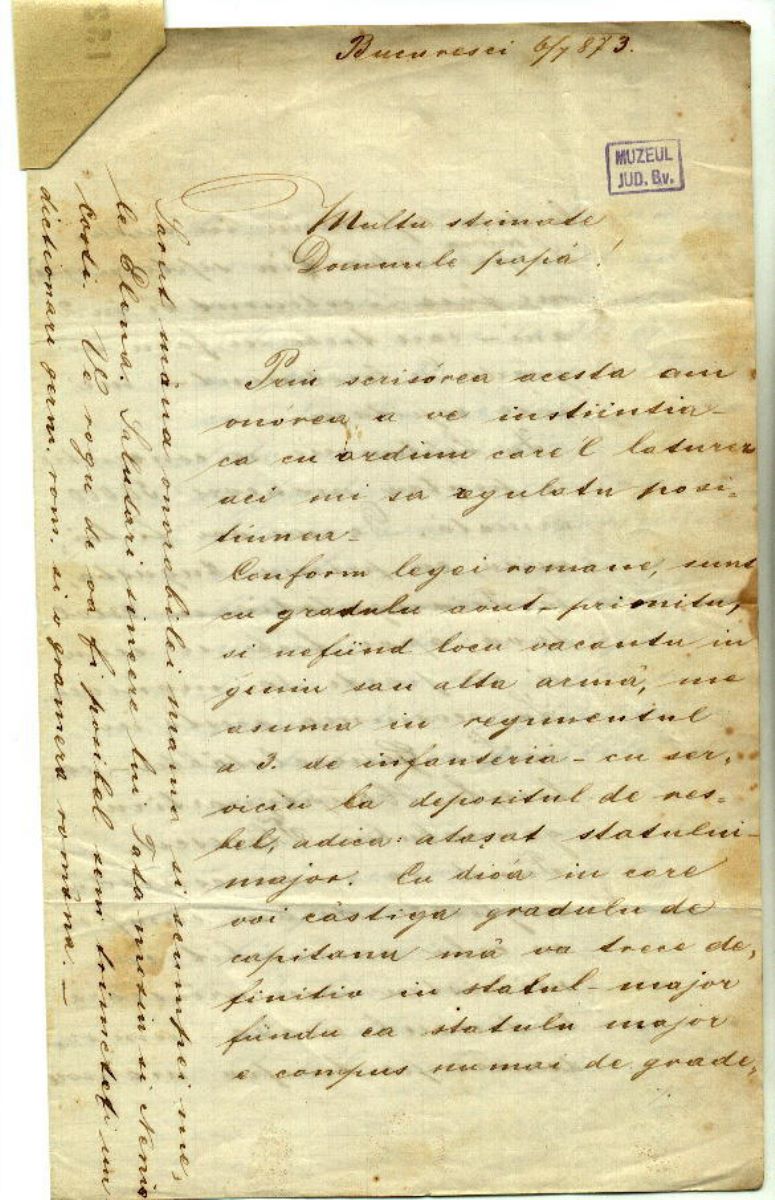 Bucuresci 6/7 873.
MUZEUL
JUD. Bv.
Multu stimate
Domnule papá!
Prin scrisórea acesta am
onórea a ve instiintia
ca cu ordinu care 'l
aci mi sa regulatu posi-
tiunea-
Conform legei romane, sunt
cu gradulu avut - priimitu,
si nefiind locu vacantu in
geniu sau alta armă, me
asuma in regimentul
a 3. de infanteria - cu ser-
viciu la depositul de res-
bel, adica: atașat statului-
major. Cu dioá in care
voi câstiga gradulu de
capitanu mă va trece de-
finitiv in statul-major
fiindu ca statulu major
e compus numai de grade,
Sarut mâna onorabilei mama si scumpei me,
le Elena. Salutari sincere lui Tata mosiu si Nenis
Costi. Ve rogu de va fi posibel semi trimeteți un
dictionariu germ. rom. si o gramera româna. -